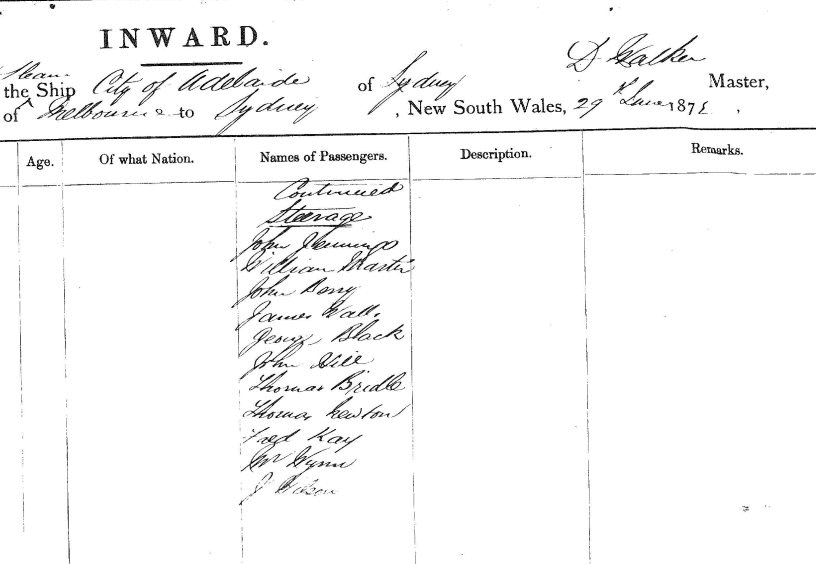 INWARD.
Steam
the Ship City of Adelaide of Sydney D Walker Master,
of Melbourne to Sydney, New South Wales, 29th June 187
Age. Of what Nation. Names of Passengers. Description. Remarks.
Continued
Steerage
John Jennings
William Martin
John Berry
James Watts
George Black
John Hill
Thomas Bridle
Thomas Newton
Fred Kay
Mr Wynn
J Gibson